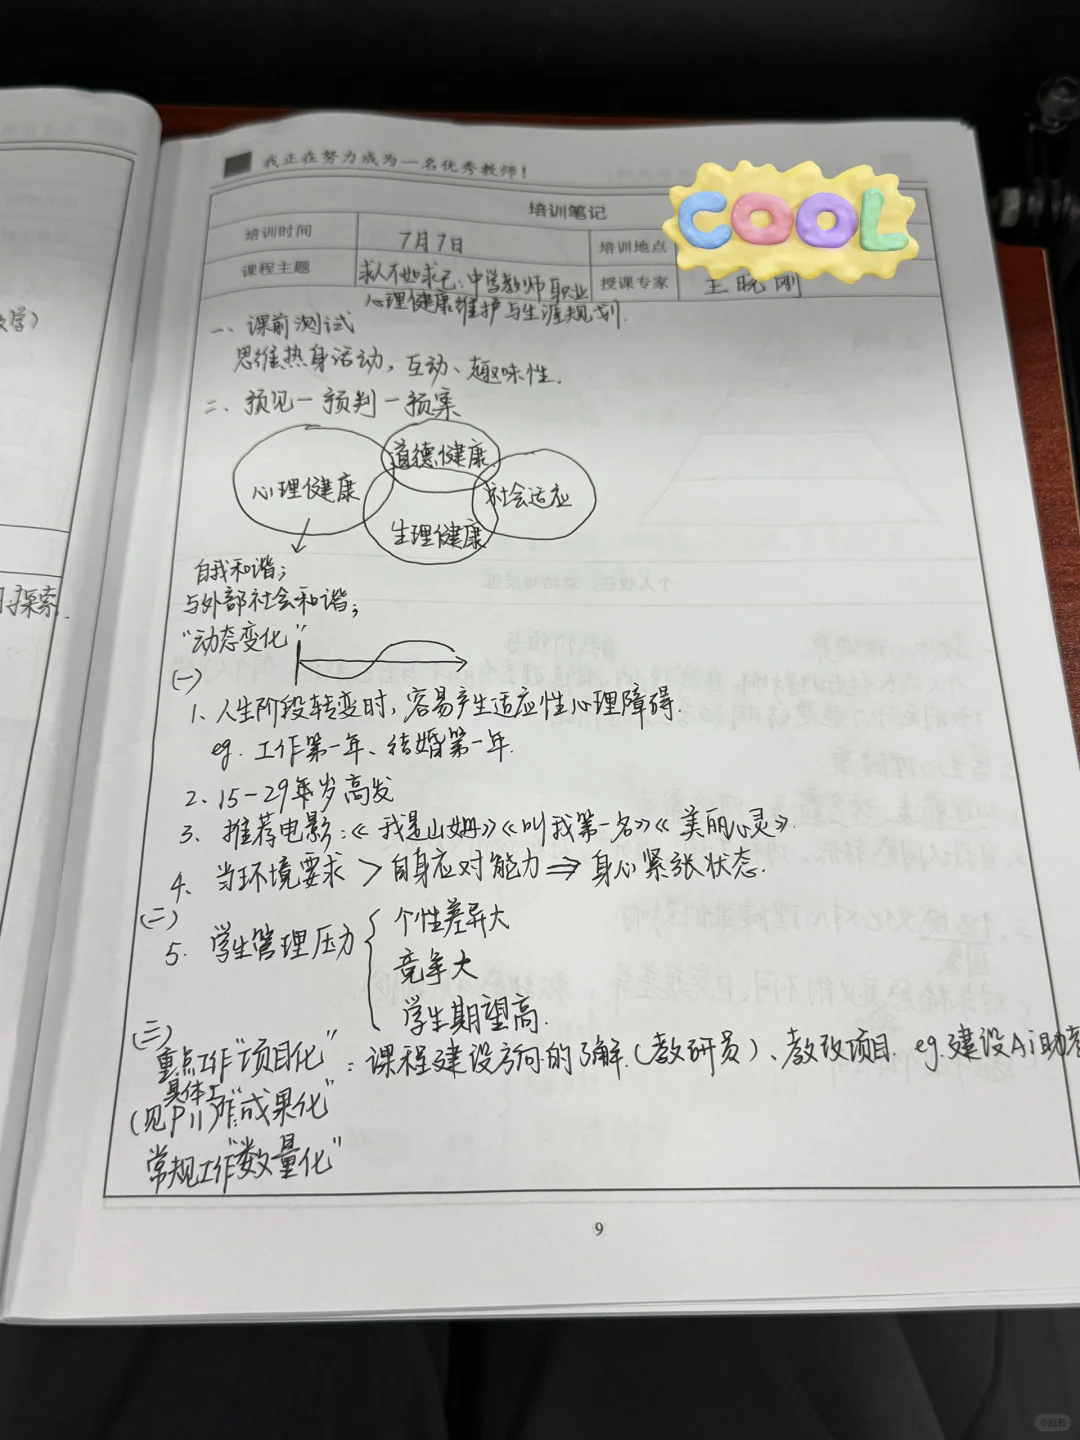 我正在努力成为一名优秀教师！
COOL
培训笔记
培训时间 7月7日 培训地点
课程主题 求人不如求己：中学教师职业 授课专家 王晓刚
心理健康维护与生涯规划.
一、课前测试
思维热身活动，互动、趣味性.
二、预见—预判—预案
道德健康
心理健康 社会适应
生理健康
自我和谐；
与外部社会和谐；
“动态变化”
(一)
1、人生阶段转变时，容易产生适应性心理障碍.
eg. 工作第一年、结婚第一年.
2、15-29岁高发
3、推荐电影：《我是山姆》《叫我第一名》《美丽心灵》.
4、当环境要求 > 自身应对能力 ⇒ 身心紧张状态.
(二)
5. 学生管理压力 { 个性差异大
竞争大
学生期望高.
(三)
重点工作“项目化”：课程建设方向的了解.(教研员)、教改项目. eg.建设Ai助
具体工
(见P11)作“成果化”
常规工作“数量化”
9
学)
探索.
小红书